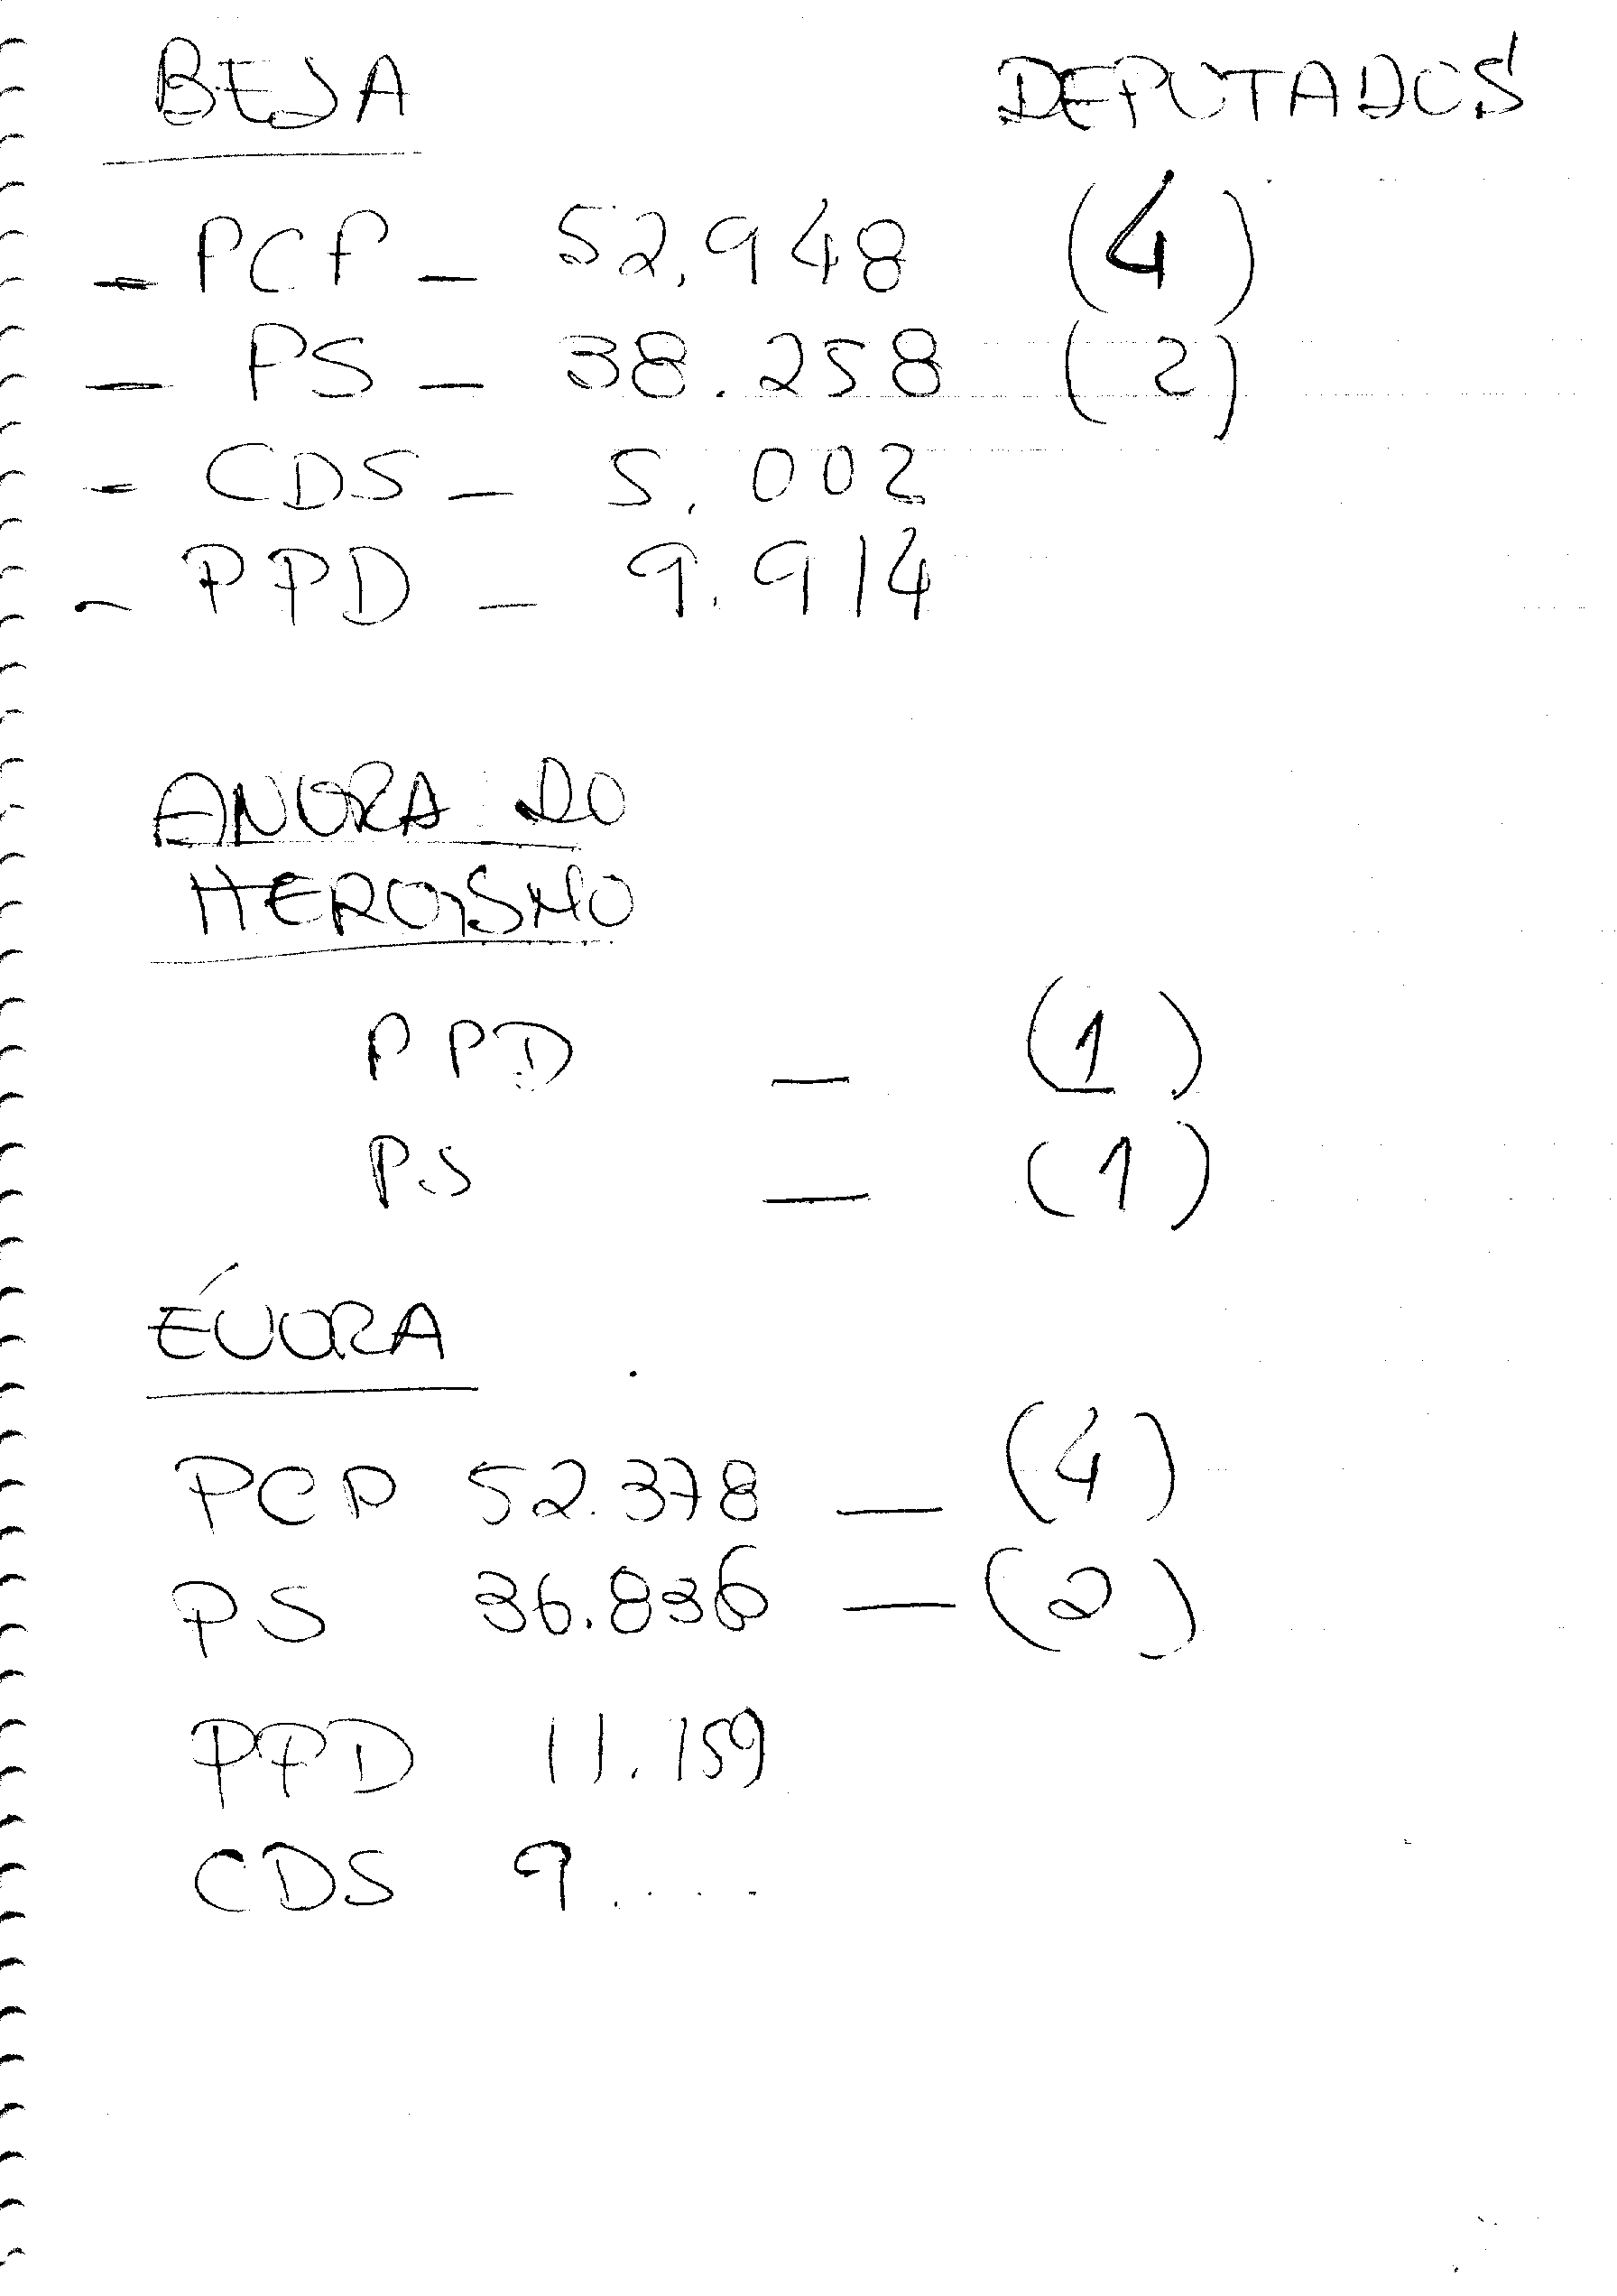 BEJA DEPUTADOS
- PCP - 52.948 (4)
- PS - 38.258 (2)
- CDS - 5.002
- PPD - 9.914
ANGRA DO
HEROISMO
PPD - (1)
PS - (1)
ÉVORA
PCP 52.378 - (4)
PS 36.836 - (2)
PPD 11.159
CDS 9.....